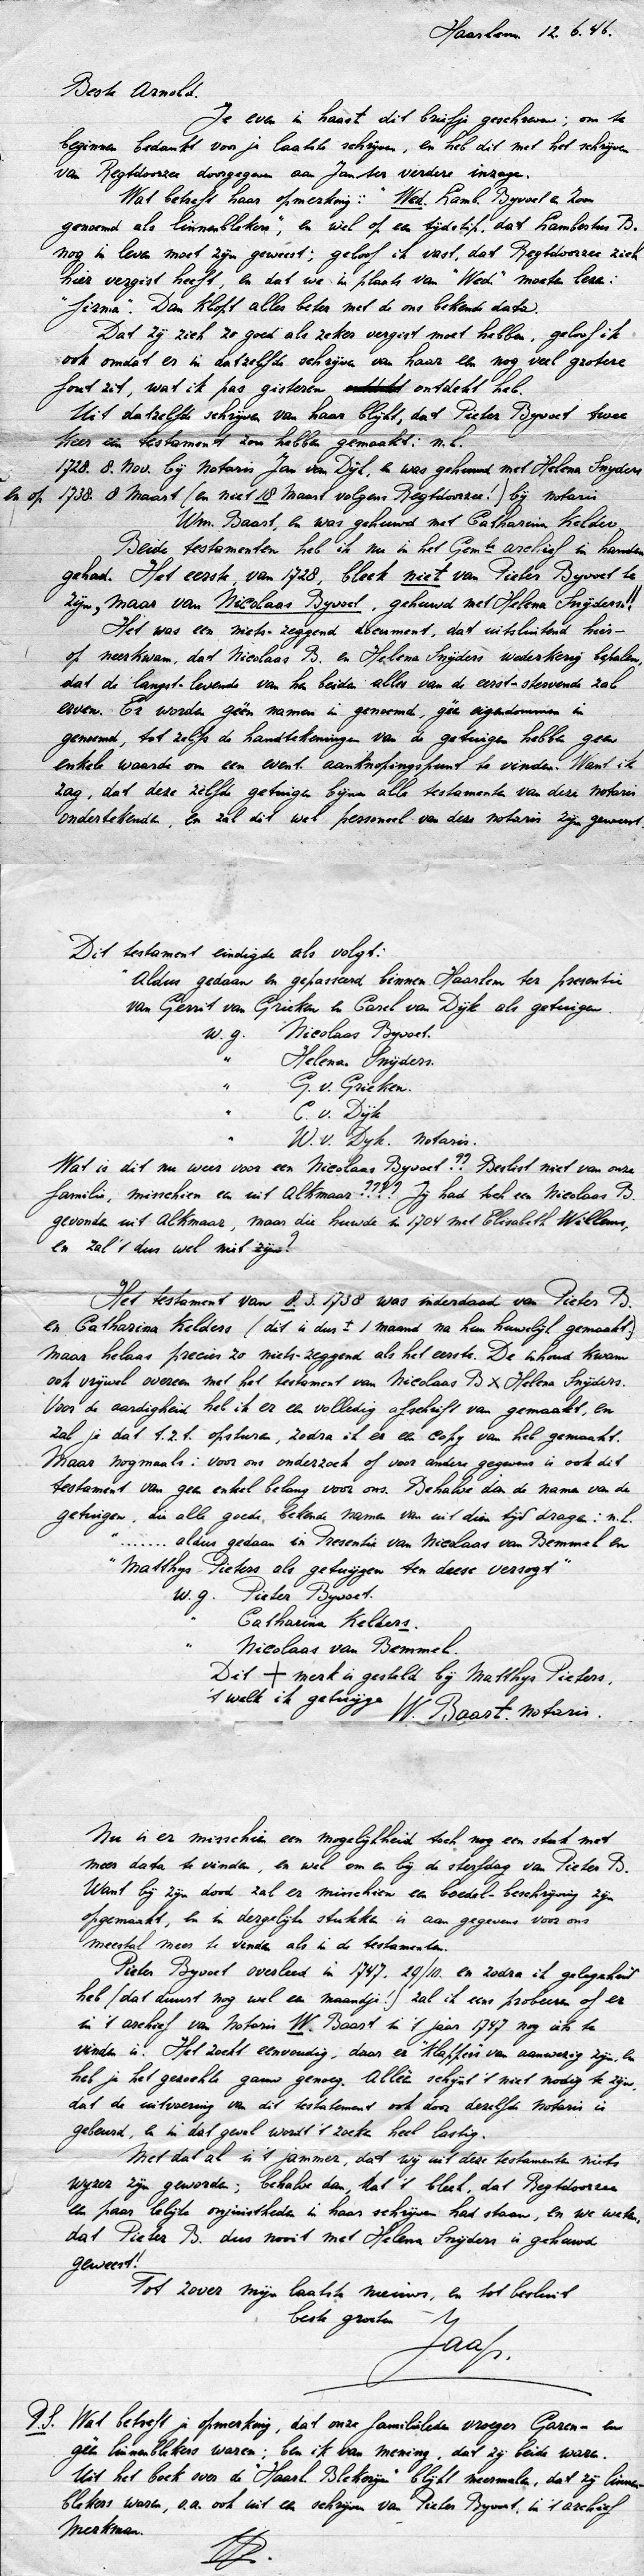 Haarlem 12. 6. 46.
Beste Arnold.
Je even in haast dit briefje geschreven; om te
beginnen bedankt voor je laatste schrijven, en heb dit met het schrijven
van Regtdoorzee doorgegeven aan Jan ter verdere inzage.
Wat betreft haar opmerking: "Wed. Lamb. Byvoet en Zoon
genoemd als linnenblekers", en wel op een tijdstip, dat Lambertus B.
nog in leven moet zijn geweest; geloof ik vast, dat Regtdoorzee zich
hier vergist heeft, en dat we in plaats van "Wed." moeten lezen:
"firma". Dan klopt alles beter met de ons bekende data.
Dat zij zich zo goed als zeker vergist moet hebben, geloof ik
ook omdat er in datzelfde schrijven van haar een nog veel grotere
fout zit, wat ik pas gisteren ontdekt heb.
Uit datzelfde schrijven van haar blijkt, dat Pieter Byvoet twee
keer een testament zou hebben gemaakt: n.l.
1728. 8. Nov. bij Notaris Jan van Dijk, en was gehuwd met Helena Snyders
en op 1738. 8 Maart (en niet 18 Maart volgens Regtdoorzee!) bij notaris
Wm. Baart, en was gehuwd met Catharina Kelder.
Beide testamenten heb ik nu in het Gemte archief in handen
gehad. Het eerste, van 1728, bleek niet van Pieter Byvoet te
zijn, maar van Nicolaas Byvoet, gehuwd met Helena Snijders!!
Het was een niets-zeggend document, dat uitsluitend hier-
op neerkwam, dat Nicolaas B. en Helena Snijders wederkerig bepalen,
dat de langst-levende van hen beiden alles van de eerst-stervende zal
erven. Er worden géén namen in genoemd, géén eigendommen in
genoemd, tot zelfs de handtekeningen van de getuigen hebben geen
enkele waarde om een event. aanknopingspunt te vinden. Want ik
zag, dat deze zelfde getuigen bijna alle testamenten van deze notaris
ondertekenden, en zal dit wel personeel van deze notaris zijn geweest.
Dit testament eindigde als volgt:
"Aldus gedaan en gepasseerd binnen Haarlem ter presentie
van Gerrit van Grieken en Carel van Dijk als getuigen.
w.g. Nicolaas Byvoet.
" Helena Snijders.
" G. v. Grieken.
" C. v. Dijk
" W. v. Dyk. Notaris.
Wat is dit nu weer voor een Nicolaas Byvoet?? Beslist niet van onze
familie, misschien een uit Alkmaar???? Jij had toch een Nicolaas B.
gevonden uit Alkmaar, maar die huwde in 1704 met Elisabeth Willems,
en zal 't dus wel niet zijn?
Het testament van 8.3.1738 was inderdaad van Pieter B.
en Catharina Kelders (dit is dus ± 1 maand na hun huwelijk gemaakt)
maar helaas precies zo niets-zeggend als het eerste. De inhoud kwam
ook vrijwel overeen met het testament van Nicolaas B x Helena Snijders.
Voor de aardigheid heb ik er een volledig afschrift van gemaakt, en
zal je dat t.z.t. opsturen, zodra ik er een copy van heb gemaakt.
Maar nogmaals: voor ons onderzoek of voor andere gegevens is ook dit
testament van geen enkel belang voor ons. Behalve dan de namen van de
getuigen, die alle goede, bekende namen van uit dien tijd dragen: n.l.
"....... aldus gedaan in Presentie van Nicolaas van Bemmel en
"Matthys Pieters als getuijgen ten deese versogt"
w.g. Pieter Byvoet.
" Catharina Kelders.
" Nicolaas van Bemmel.
Dit + merk is gesteld bij Matthys Pieters,
't welk ik getuijge W. Baart. Notaris.
Nu is er misschien een mogelijkheid toch nog een stuk met
meer data te vinden, en wel om en bij de sterfdag van Pieter B.
Want bij zijn dood zal er misschien een boedel-beschrijving zijn
opgemaakt, en in dergelijke stukken is aan gegevens voor ons
meestal meer te vinden als in de testamenten.
Pieter Byvoet overleed in 1747. 29/10. en zodra ik gelegenheid
heb (dat duurt nog wel een maandje!) zal ik eens proberen of er
in 't archief van Notaris W. Baart in 't jaar 1747 nog iets te
vinden is. Het zoekt eenvoudig, daar er "klappers" van aanwezig zijn, en
heb je het gezochte gauw genoeg. Alléén schijnt 't niet nodig te zijn,
dat de uitvoering van dit testatement ook door dezelfde Notaris is
gebeurd, en in dat geval wordt 't zoeken heel lastig.
Met dat al is 't jammer, dat wij uit deze testamenten niets
wijzer zijn geworden; behalve dan, dat 't bleek, dat Regtdoorzee
een paar lelijke onjuistheden in haar schrijven had staan, en we weten,
dat Pieter B. dus nooit met Helena Snijders is gehuwd
geweest!
Tot zover mijn laatste nieuws, en tot besluit
beste groeten
Jaap.
P.S. Wat betreft je opmerking, dat onze familieleden vroeger Garen- en
géén linnenblekers waren; ben ik van mening, dat zij beide waren.
Uit het boek over de "Haarl. Blekerijen" blijkt meermalen, dat zij linnen-
blekers waren, o.a. ook uit een schrijven van Pieter Byvoet, in 't archief
Merkman.